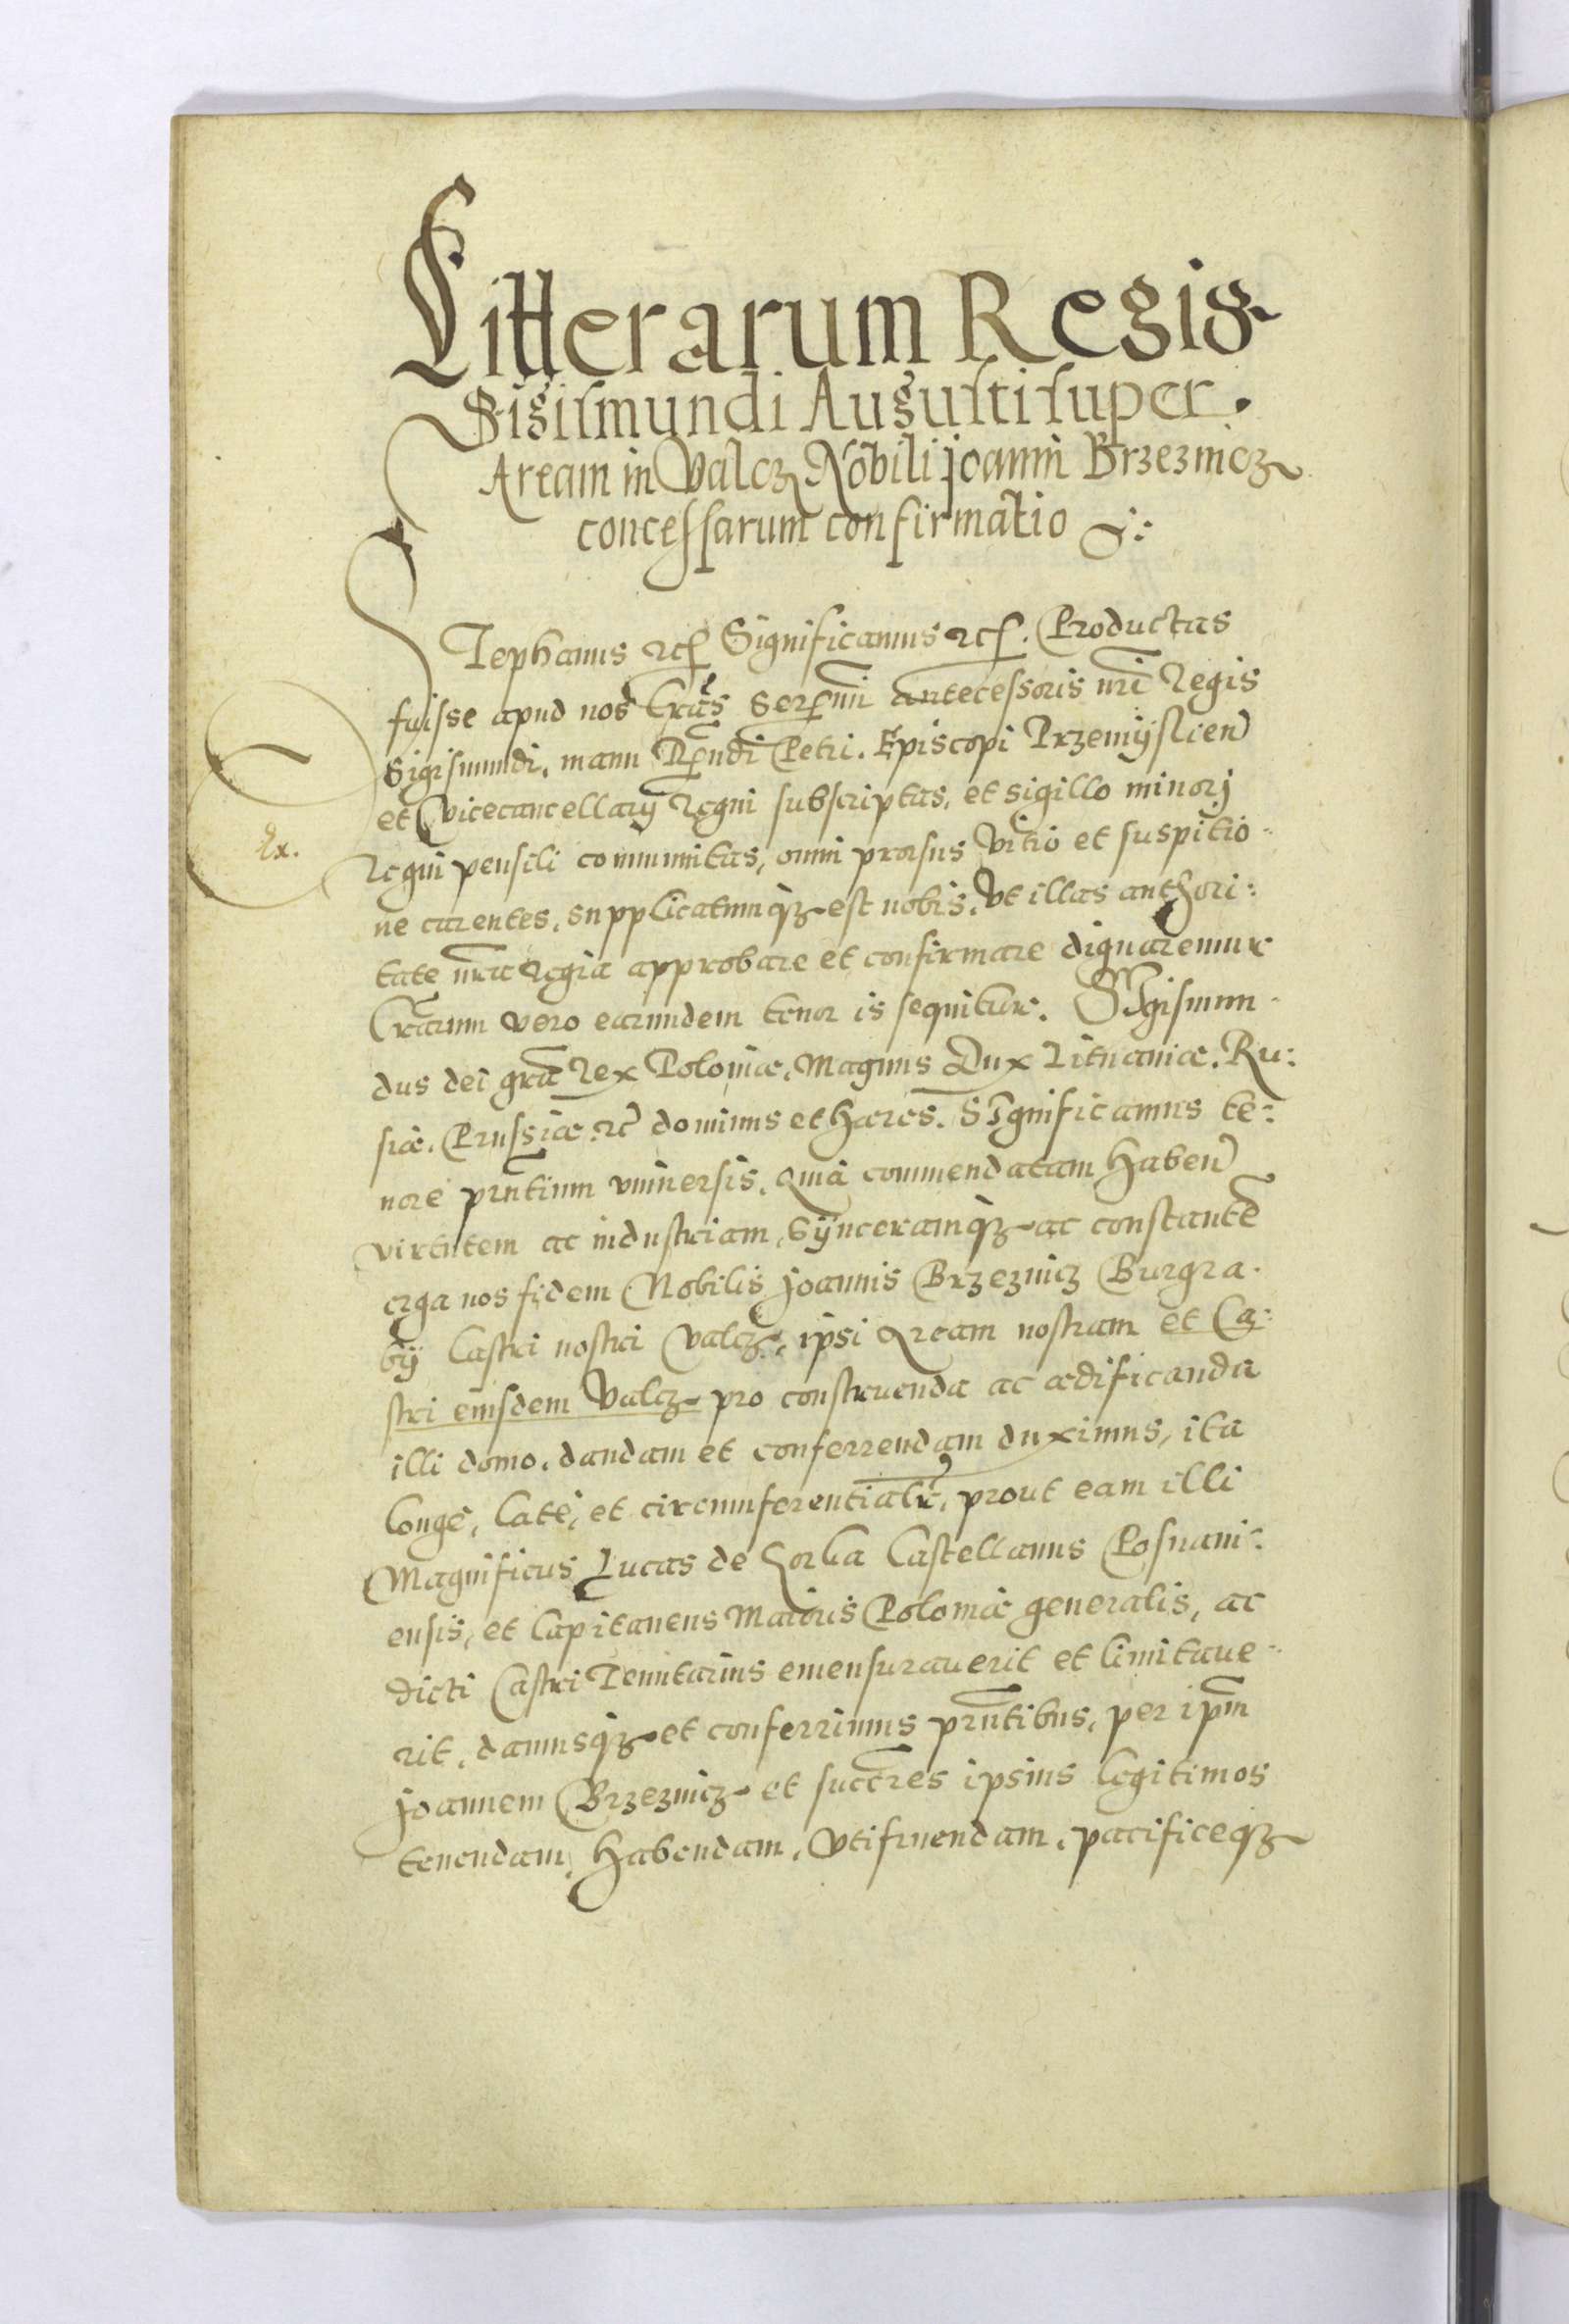 Litterarum Regis
Sigismundi Augusti super
Aream in Valcz Nobili Joanni Brzeznicz
concessarum confirmatio
STephanus etc. Significamus etc. Productas
fuisse apud nos lrãs Serẽmi antecessoris nrĩ Regis
Sigismundi, manu Rẽndi Petri Episcopi Przemysлien
et Vicecancellarij Regni subscriptas, et sigillo minorj
Ex.
Regni pensili communitas, omni prorsus vitio et suspitio-
ne carentes, supplicatumqз est nobis, Vt illas authori:
tate nrã Regia approbare et confirmare dignaremur
Lrãrum vero earundem tenor is sequitur. SIgismun-
dus dei grã Rex Poloniæ, Magnus Dux Lituaniæ, Ru:
siæ, Prussiæ etc dominus et hæres. SIgnificamus te:
nore prñtium vniuersis, Quia commendatam haben
virtutem ac industriam, Synceramqз ac constantẽ
erga nos fidem Nobilis Joannis Brzeznicz Burgra-
bij Castri nostri Valcz, ipsi Aream nostram et Ca:
stri eiusdem Valcz pro construenda ac ædificanda
illi domo, dandam et conferrendam duximus, ita
longe, late, et circumferentialr, prout eam illi
Magnificus Lucas de Gorka Castellanus Posnani:
ensis, et Capitaneus Maioris Poloniæ generalis, ac
dicti Castri Tenutarius emensurauerit et limitaue-
rit, damusqз et conferrimus prñtibus, per ipm̃
Joannem Brzeznicz et succres ipsius legitimos
tenendam, habendam, vtifruendam, pacificeqз